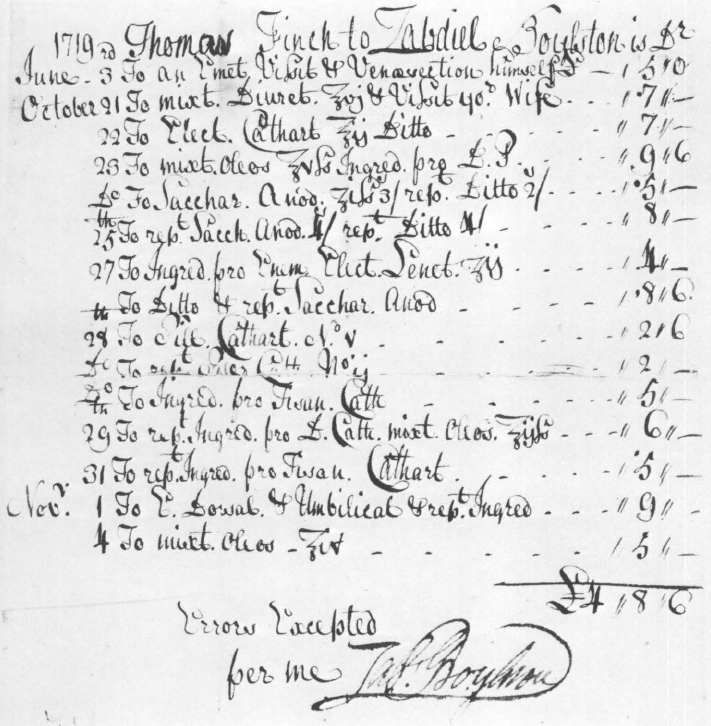 1719 Thomas Finch to Zabdiel Boylston is Dr
June 3rd To an Emet. Visit & Venæsection himself 〃 5 〃 0
October 21 To mixt. Diuret. ℥vj & Visit yor. Wife 〃 7 〃 —
22 To Elect. Cathart ℥ij Ditto 〃 7 〃 —
23 To mixt. Oleos ℥vſs Ingred. pro D. P. 〃 9 〃 6
Do To Sacchar. Anod. ℥iſs 3/ rept. Ditto 2/ 〃 5 〃 —
25th To rept. Sacch. Anod. 4/ rept. Ditto 4/ 〃 8 〃 —
27 To Ingred. pro Enem. Elect. Lenet. ℥ij 〃 4 〃 —
To Ditto & rept. Sacchar. Anod 〃 8 〃 6
28th To Pill. Cathart. No. v 〃 2 〃 6
Do To rept. Cath. No ij 〃 2 〃 —
Do To Ingred. pro Tisan. Cath 〃 5 〃 —
29th To rept. Ingred. pro D. Cath. mixt. Oleos. ℥ijſs 〃 6 〃 —
31 To rept. Ingred. pro Tisan. Cathart. 〃 5 〃 —
Novr. 1 To E. Dorsal & Umbilical & rept. Ingred 〃 9 〃 —
4 To mixt. Oleos ℥iv 〃 5 〃 —
£4 〃 8 〃 6
Errors Excepted
per me Zabl. Boylston